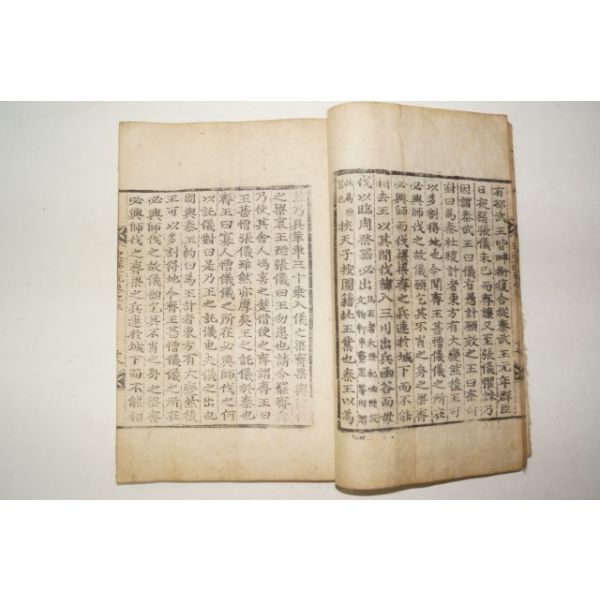 有郤武王皆畔衡復合從秦武王元年群臣
日夜惡張儀未已而齊讓又至張儀懼誅乃
因謂秦武王曰儀有愚計願效之王曰奈何
對曰爲秦社稷計者東方有大變然後王可
以多割得地也今聞齊王甚憎儀儀之所在
必興師伐之故儀願乞其不肖之身之梁齊
必興師而伐梁梁齊之兵連於城下而不能
相去王以其間伐韓入三川出兵函谷而毋
伐以臨周祭器必出凡王者大祭祀必陳設文物軒車彝器等因謂
此等爲祭器也挾天子按圖籍此王業也秦王以爲
然乃具革車三十乘入儀之梁齊果興師伐
之梁哀王恐張儀曰王勿患也請令罷齊兵
乃使其舍人馮喜之楚借使之齊謂齊王曰
王甚憎張儀雖然亦厚矣王之託儀於秦也
齊王曰寡人憎儀儀之所在必興師伐之何
以託儀對曰是乃王之託儀也夫儀之出也
固與秦王約曰爲王計者東方有大變然後
王可以多割得地今齊王甚憎儀儀之所在
必興師伐之故儀願乞其不肖之身之梁齊
必興師伐之齊梁之兵連於城下而不能相